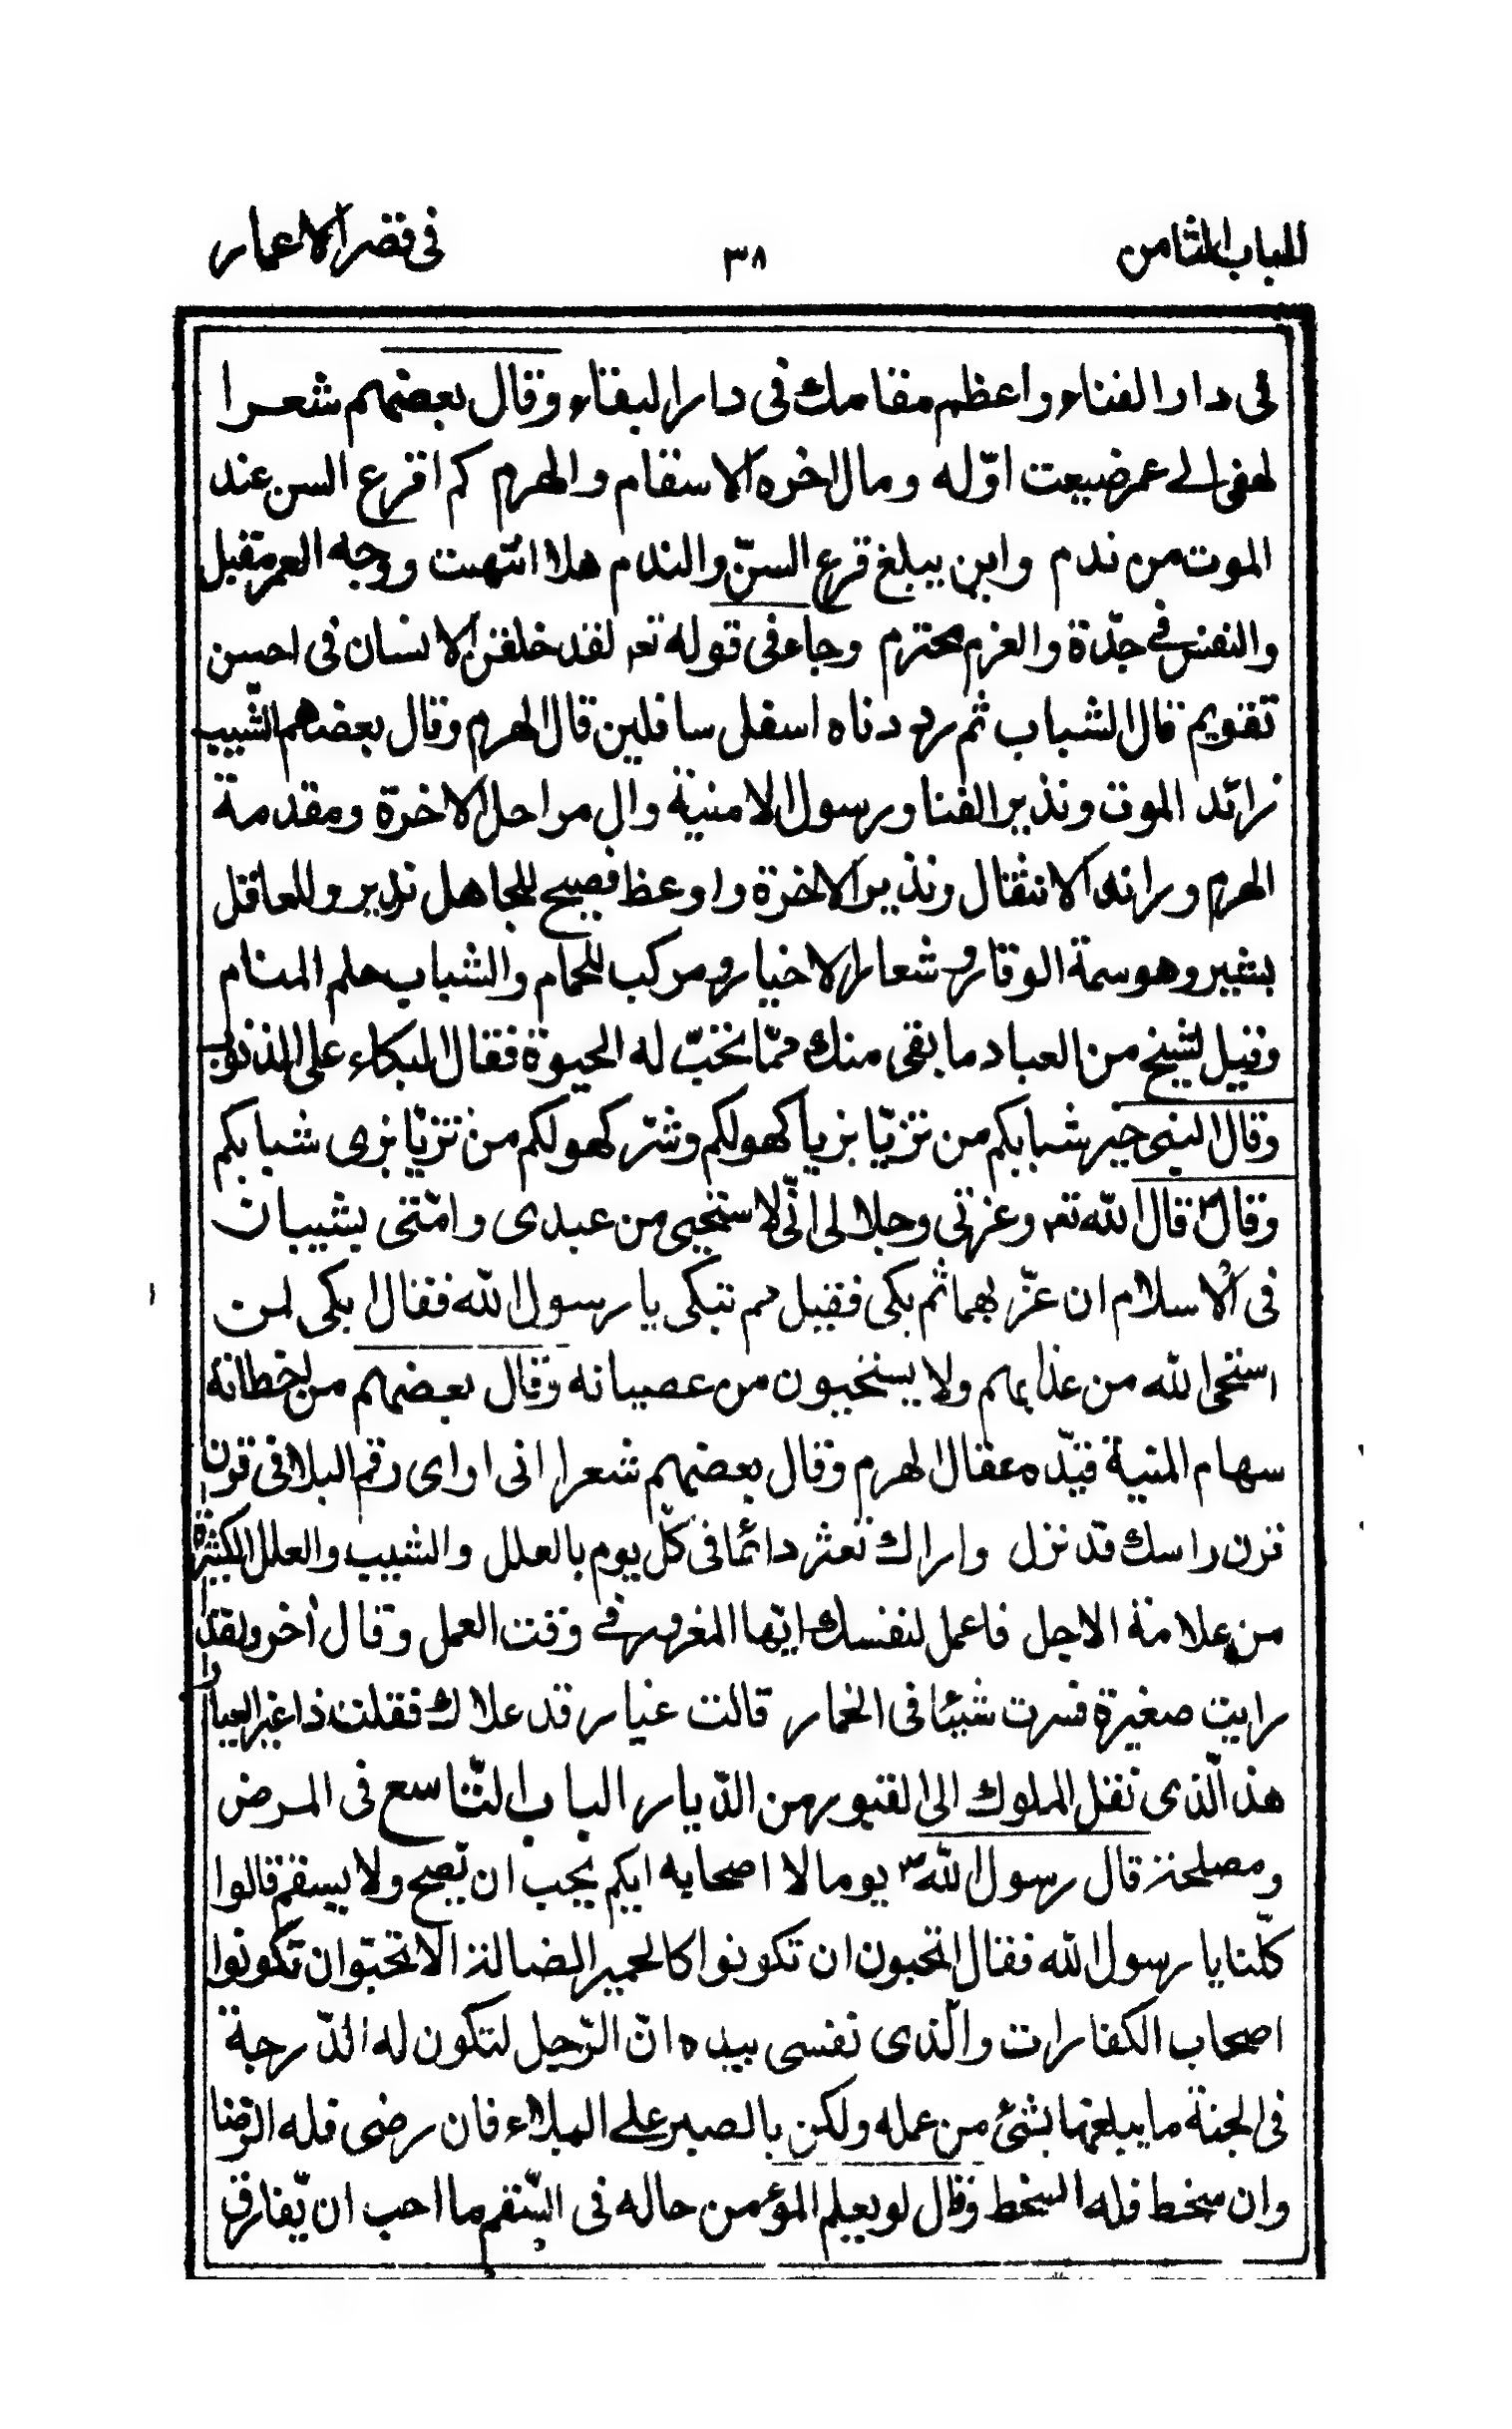 الباب الثامن
٣٨
فى قصر الاعمار
فى دار الفناء واعظم مقامك فى دار البقاء وقال بعضهم شعرا
لهفى الى عمر ضيعت اوّله ومال اخره الاسقام والهرم كم اقرع السن عند
الموت من ندم واين يبلغ قرع السنّ والندم هلا انتهت ووجه العمر مقبل
والنفس فى جدّة والعزم محترم وجاء فى قوله تعـ لقد خلقنا الانسان فى احسن
تقويم قال الشباب ثم رددناه اسفل سافلين قال الهرم وقال بعضهم الشّيب
رائد الموت ونذير الفنا ورسول الامنية وال مراحل الاخرة ومقدمة
الهرم ورائد الانتقال ونذير الاخرة واوعظ فصيح للجاهل نذير وللعاقل
بشير وهو سمة الوقار وشعار الاخيار ومركب للحمام والشباب حلم المنام
وقيل لشيخ من العباد ما بقى منك ممّا تحبّ له الحيوة فقال البكاء على الذنوب
وقال النبى خير شبابكم من تزيّا بزيا كهولكم وشرّ كهولكم من تزيّا بزى شبابكم
وقال ص قال الله تعـ وعزتى وجلالى انّى لاستحيى من عبدى وامّتى يشيبان
فى الاسلام ان عذّبهما ثم بكى فقيل مم تبكى يا رسول الله فقال ابكى لمن
استحى الله من عذابهم ولا يستحيون من عصيانه وقال بعضهم من اخطاته
سهام المنية قيّده عقال الهرم وقال بعضهم شعرا انى اراى رقم البلا فى قرن
قرن راسك قد نزل واراك تعثر دائما فى كلّ يوم بالعلل والشيب والعلل الكثيرة
من علامة الاجل فاعمل لنفسك ايّها المغرور فى وقت العمل وقال اخر ولقد
رايت صغيرة فسرت شيبًا فى الخمار قالت غبار قد علاك فقلت ذا غير الغبار
هذا الّذى نقل الملوك الى القبور من الدّيار الباب التّاسع فى المرض
ومصلحته قال رسول الله ص يوما لا اصحابه ايكم يحب ان يصح ولا يسقم قالوا
كلّنا يا رسول الله فقال اتحبون ان تكونوا كالحمير الضالة الا تحبّوان تكونوا
اصحاب الكفارات والّذى نفسى بيده انّ الرّجل لتكون له الدّرجة
فى الجنة ما يبلغها بشئ من عمله ولكن بالصبر على البلاء فان رضى فله الرّضا
وان سخط فله السخط وقال لو يعلم المؤمن حاله فى السّقم ما احب ان يّفارق